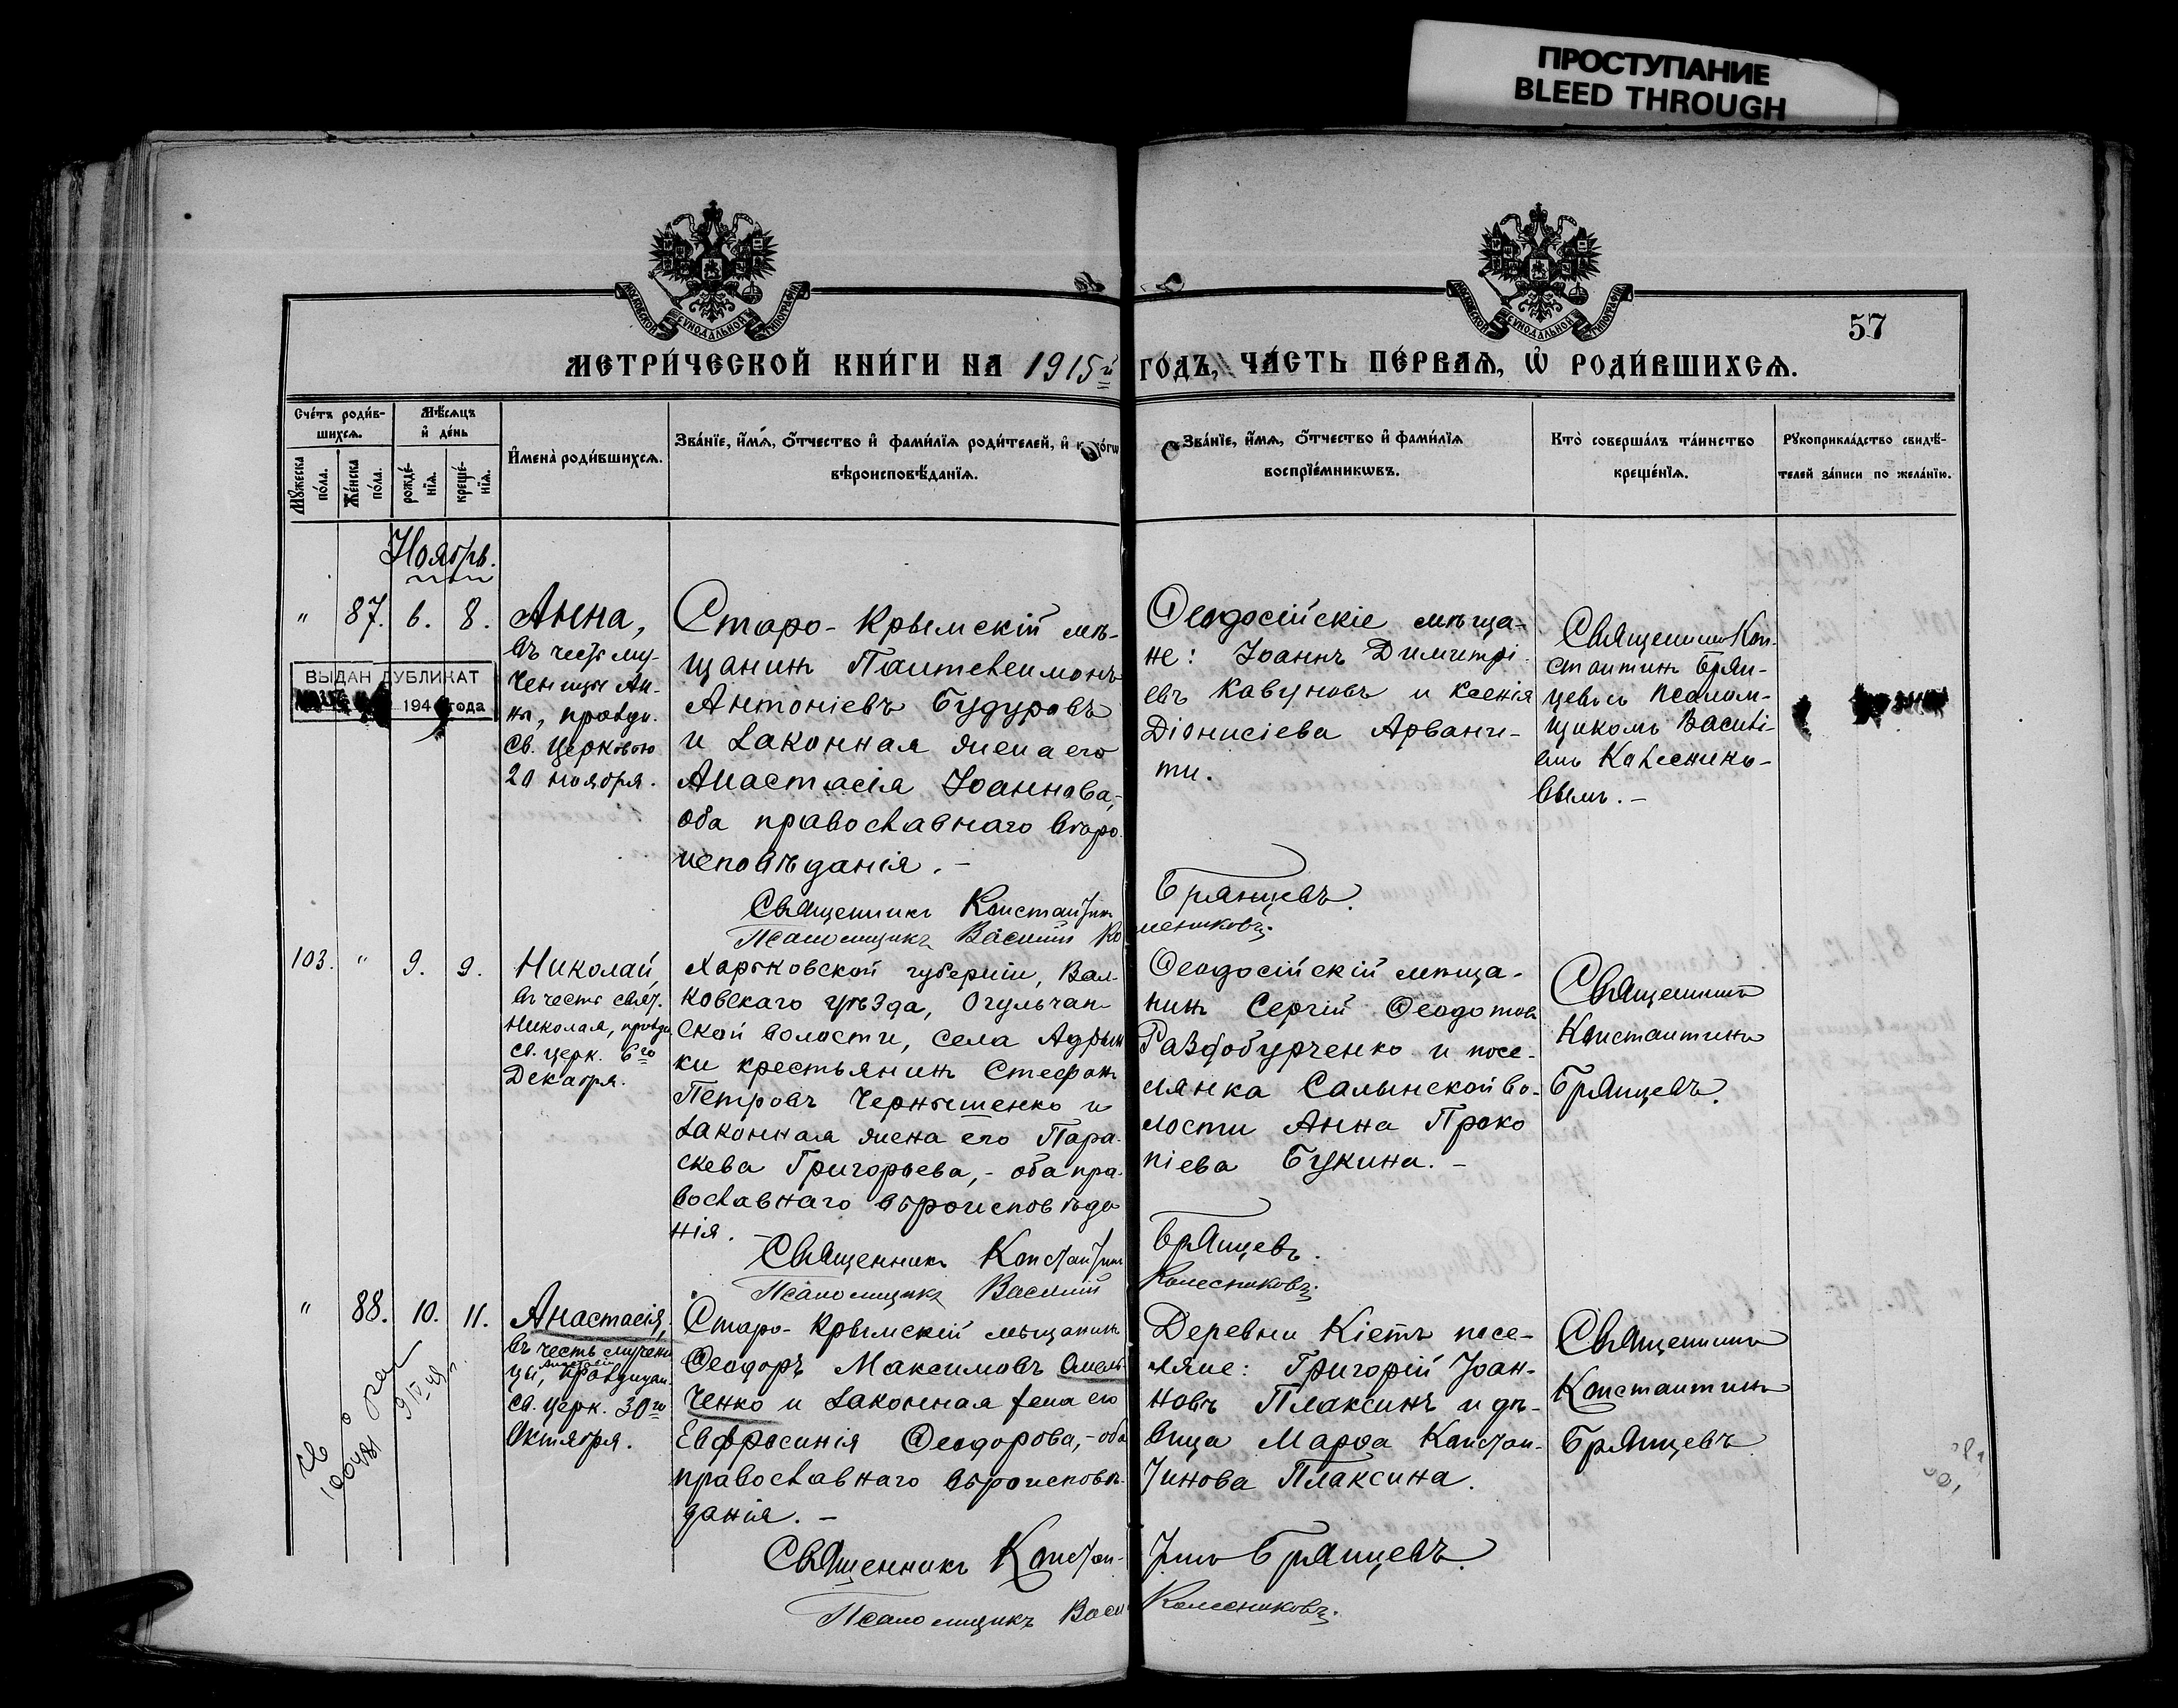 ПРОСТУПАНИЕ
BLEED THROUGH
МОСКОВСКОЙ СѴНОДАЛЬНОЙ ТИПОГРАФІИ
МОСКОВСКОЙ СѴНОДАЛЬНОЙ ТИПОГРАФІИ
57
МЕТРИ́ЧЕСКОЙ КНИ́ГИ НА 1915й ГО́ДЪ, ЧА́СТЬ ПЕ́РВАѦ, Ѡ҆ РОДИ́ВШИХСѦ.
Сче́тъ роди́в-
шихсѧ.
Мꙋ́жеска
по́ла.
Же́нска
по́ла.
Мѣ́сѧцъ
и҆ де́нь
рожде́-
нїѧ.
креще́-
нїѧ.
И҆мена̀ роди́вшихсѧ.
Зва́нїе, и҆́мѧ, ѻ҆́тчество и҆ фами́лїѧ роди́телей, и҆
вѣроисповѣ́данїѧ.
Зва́нїе, и҆́мѧ, ѻ҆́тчество и҆ фами́лїѧ
воспрїе́мникѡвъ.
Кто̀ соверша́лъ та́инство
креще́нїѧ.
Рꙋкоприкла́дство свидѣ́-
телей за́писи по жела́нїю.
Ноябрь.
" 87. 6. 8.
ВЫДАН ДУБЛИКАТ
194 года
Анна,
въ честь му-
ченицы Ан-
ны, празду.
св. Церковью
20 ноября.
Старо-Крымскій мѣ-
щанинъ Пантелеимонъ
Антоніевъ Будуровъ
и законная жена его
Анастасія Іоаннова,-
оба православнаго вѣро-
исповѣданія.-
Священникъ Константинъ Брянцевъ.
Псаломщикъ Василій Колесниковъ.
Ѳеодосійскіе мѣща-
не: Іоаннъ Димитрі-
евъ Кавуновъ и Ксенія
Діонисіева Арвани-
ти.
Священникъ Кон-
стантинъ Брян-
цевъ съ псалом-
щикомъ Василі-
емъ Колеснико-
вымъ.-
103. " 9. 9.
Николай,
въ честь свят.
Николая, празду
св. церк. 6го
Декабря.
Харьковской губерніи, Вал-
ковскаго уѣзда, Огульчан-
ской волости, села
ки крестьянинъ Стефанъ
Петровъ Чернышенко и
законная жена его Пара-
скева Григорьева,- оба пра-
вославнаго вѣроисповѣда
нія.-
Священникъ Константинъ Брянцевъ.
Псаломщикъ Василій Колесниковъ.
Ѳеодосійскій мѣща-
нинъ Сергій Ѳеодотовъ
Раздобурченко и посе-
лянка Салынской во-
лости Анна Проко
піева Букина.-
Священникъ
Константинъ
Брянцевъ.
" 88. 10. 11.
9 IV 49 г.
Анастасія,
въ честь мучени
цы, Анастасіи праздуцой
св. церк. 30го
Октября.
Старо-Крымскій мѣщанинъ
Ѳеодоръ Максимовъ Омель-
ченко и законная жена его
Евфросинія Ѳеодорова,- оба
православнаго вѣроисповѣ-
данія.-
Священникъ Констан- тинъ Брянцевъ.
Псаломщикъ Васи Колесниковъ.
Деревни Кіетъ посе-
ляне: Григорій Іоан-
новъ Плаксинъ и дѣ-
вица Марѳа Констан-
тинова Плаксина.
Священникъ
Константинъ
Брянцевъ